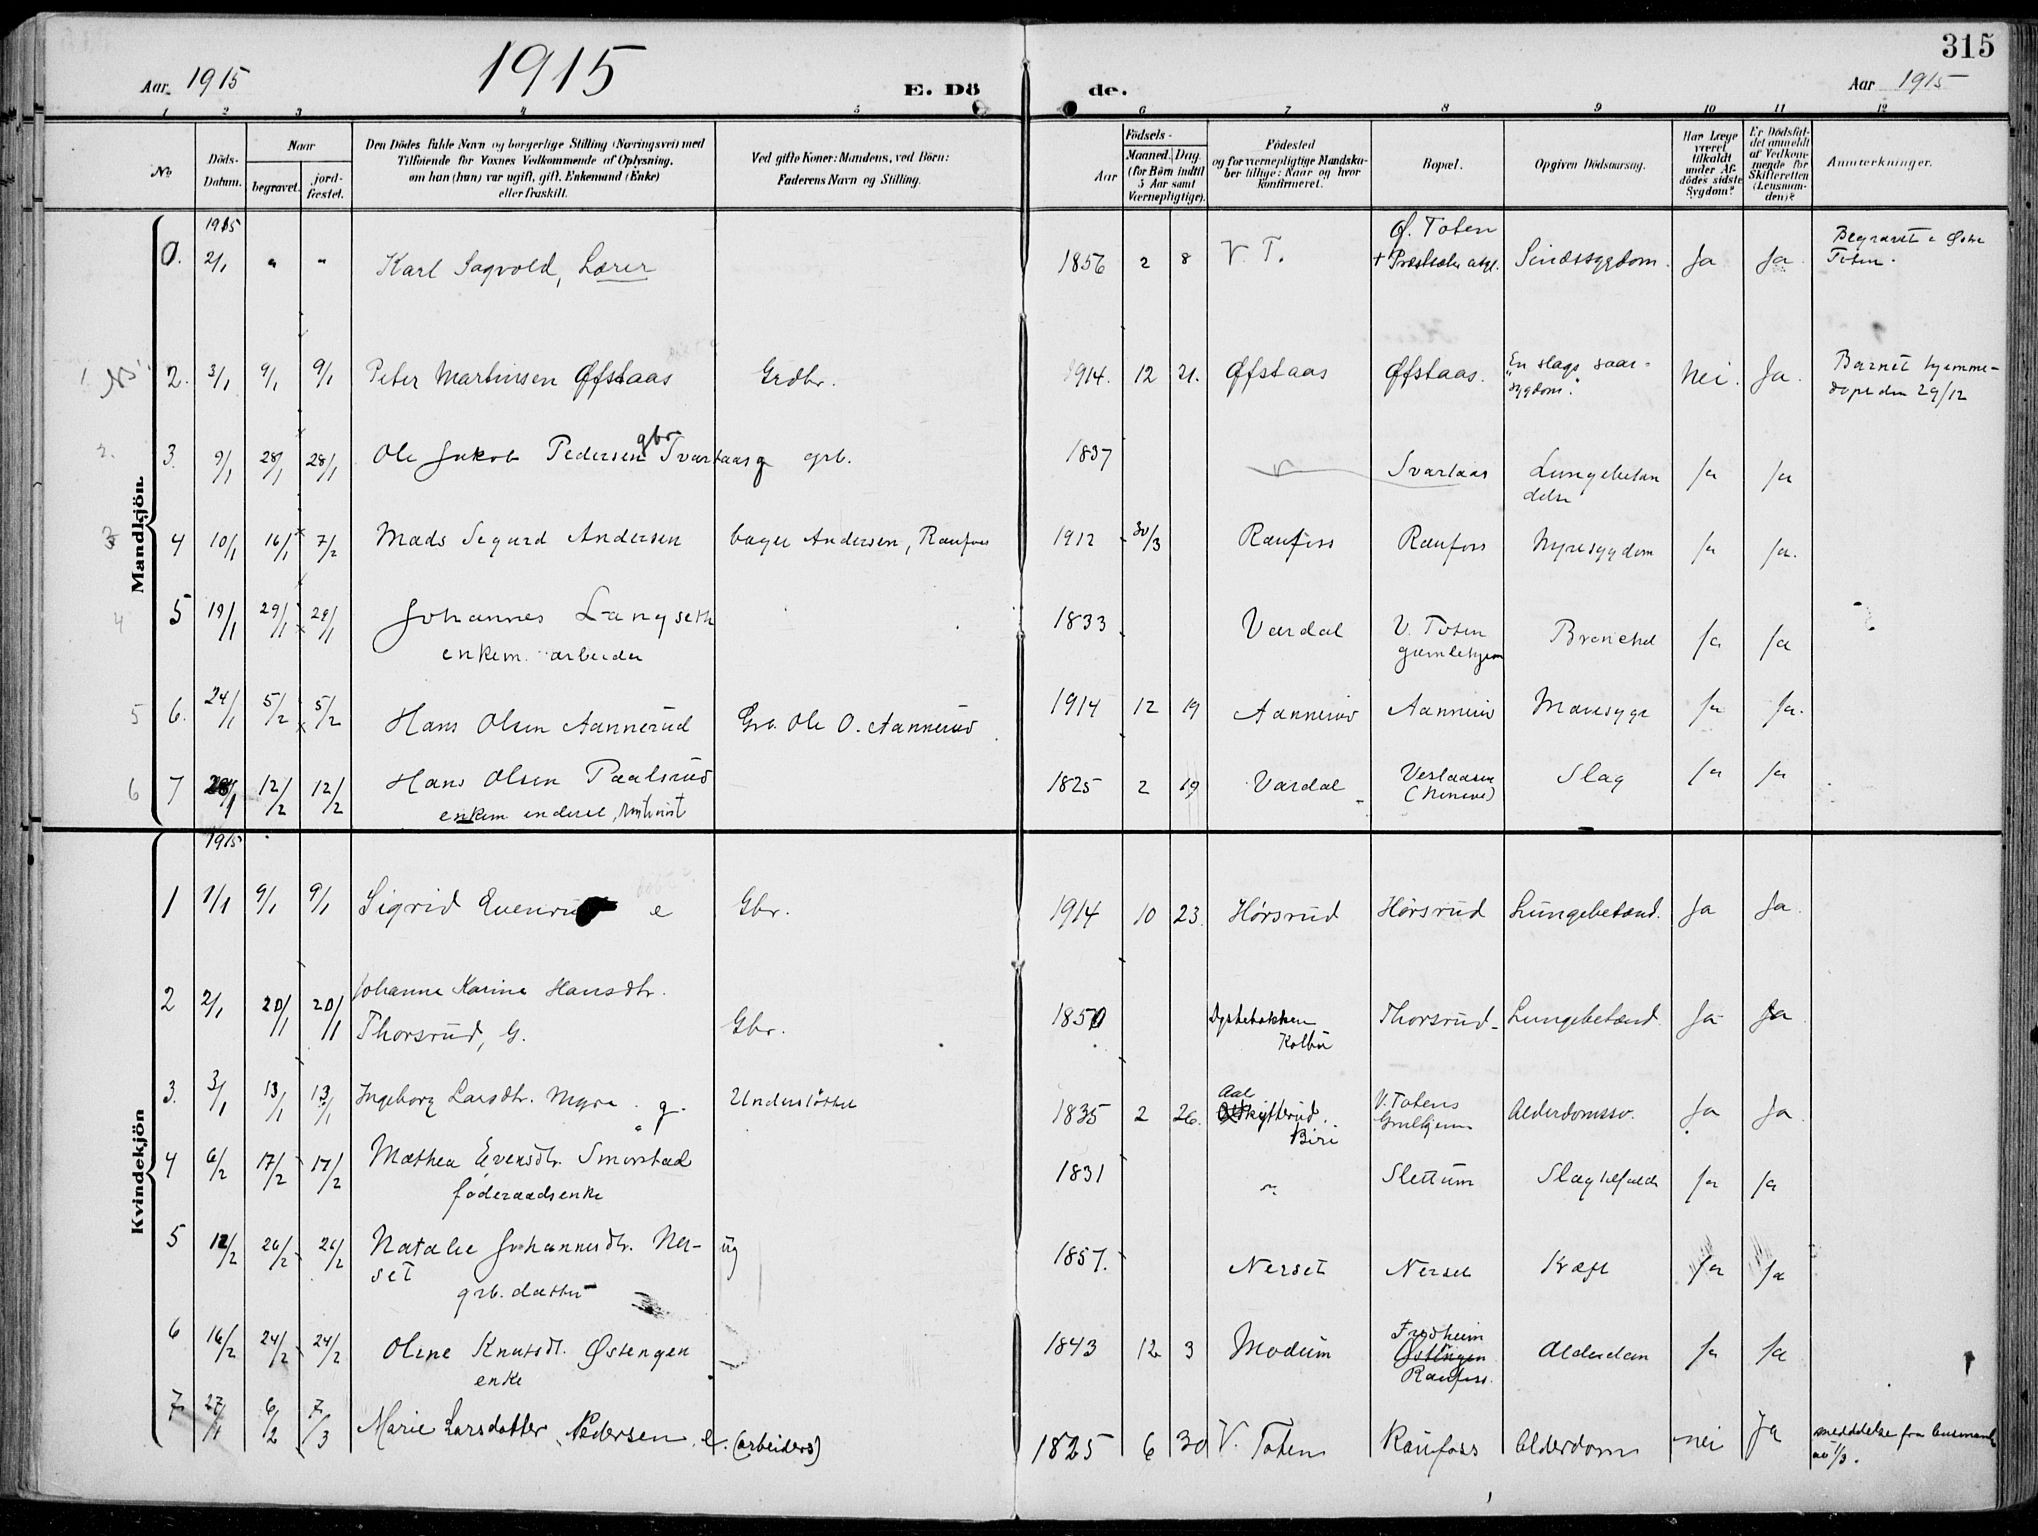 315
Aar 1915
1915
E. Döde.
Aar 1915
1 2 3 4 5 6 7 8 9 10 11 12
No.
Döds-Datum.
Naar
begravet.
jord-fæstet.
Den Dödes fulde Navn og borgerlige Stilling (Næringsvei) med
Tilföiende för Voxnes Vedkommende af Oplysning,
om han (hun) var ugift, gift, Enkemand (Enke)
eller fraskilt.
Ved gifte Koner: Mandens, ved Börn:
Faderens Navn og Stilling.
Födsels-
Aar
Maaned. Dag.
(for Börn indtil
5 Aar samt
Værnepligtige).
Födested
og for værnepligtige Mandska-
ber tillige: Naar og hvor
konfirmeret.
Bopæl.
Opgiven Dödsaarsag.
Har Læge
været
tilkaldt
under Af-
dödes sidste
Sygdom?
Er Dödsfal-
det anmeldt
af Vedkom-
mende for
Skifteretten
(Lensman-
den)?
Anmærkninger.
Mandkjön.
1915
0. 2/1 " " Karl Sagvold, Lærer 1856 2 8 V. T. Ø. Toten Sindssygdom. Ja Ja Begravet i Østre
Toten.
2. 3/1 9/1 9/1 Peter Martinsen Øfstaas Grdbr. 1914. 12 21. Øfstaas Øfstaas. En slags saar-
sygdom". Nei. Ja. Barnet hjemme-
døpt den 29/12
3. 9/1 28/1 28/1 Ole Jakob Pedersen Svartaas g gbr. 1837 Svartaas Lungebetæn
delse Ja Ja
4 10/1 16/1 7/2 Mads Sigurd Andersen bager Andersen, Raufoss 1912 30/3 Raufoss Raufoss Nyresygdom Ja Ja.
5 19/1 29/1 29/1 Johannes Langseth
enkem. arbeider 1833 Vardal V. Toten
gamlehjem Bronchit Ja Ja
6. 24/1 5/2 5/2 Hans Olsen Aannerud Grb. Ole O. Aannerud 1914 12 19 Aannerud Aannerud Mavesyge Ja Ja.
7 28/1 12/2 12/2 Hans Olsen Paalsrud
enkem. inderst 1825 2 19 Vardal Veslaasen Slag Ja Ja
Kvindekjön
1915
1 1/1 9/1 9/1 Sigrid Evenrud e Gbr. 1914 10 23 Hörsrud Hörsrud Lungebetænd. Ja Ja.
2 2/1 20/1 20/1 Johanne Karine Hansdtr.
Thorsrud, G. Gbr. 1850 Kolbu Thorsrud Lungebetænd. Ja Ja
3. 3/1 13/1 13/1 Ingeborg Larsdtr. Myra. g. Understöttet 1835 2 26. Biri V. Totens
Gmlhjem Alderdomssv. Ja Ja.
4 6/2 17/2 17/2 Mathea Evensdtr. Smørstad
föderaadsenke 1831 " Slettum Slagtilfælde Ja Ja
5 12/2 26/2 26/2 Natalie Johannesdtr. Ner-
set
grb. datter ug 1857. Nerset Nerset Kræft Ja Ja
6 16/2 24/2 24/2 Oline Knutsdt. Østengen
enke 1843 12 3 Modum Fredheim
Østengen
Raufoss. Alderdom Ja Ja
7 27/1 6/2 7/3 Marie Larsdatter Pedersen, e. (arbeiders) 1825 6 30 V. Toten Raufoss Alderdom nei Ja meddelelse fra lensmand
av 1/3.